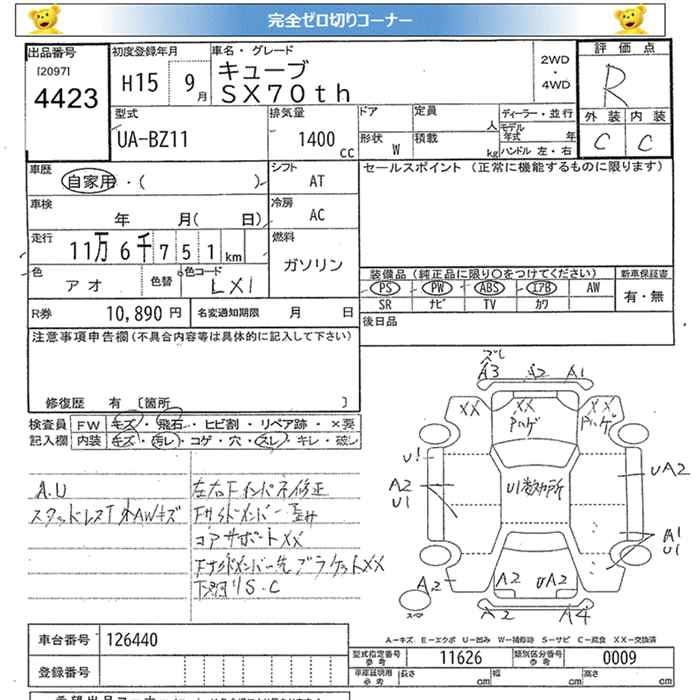 完全ゼロ切りコーナー
出品番号
[2097]
4423
初度登録年月
H15 9月
車名・グレード
キューブ
SX70th
2WD
・
4WD
評価点
R
外装 内装
C C
型式
UA-BZ11
排気量
1400 cc
ドア
定員 人
形状 W
積載 kg
ディーラー・並行
モデル年式 年
ハンドル 左・右
車歴
自家用・( )
シフト
AT
セールスポイント (正常に機能するものに限ります)
車検
年 月( 日)
冷房
AC
走行
11万6千751km
燃料
ガソリン
色
アオ
色替
色コード
LX1
装備品(純正品に限り○をつけてください)
PS PW ABS エアB AW
SR ナビ TV カワ
新車保証書
有・無
R券 10,890円
名変通知期限 月 日
後日品
注意事項申告欄(不具合内容等は具体的に記入して下さい)
修復歴 有 〔箇所 〕
検査員 FW キズ・飛石・ヒビ割・リペア跡・×要
記入欄 内装 キズ・汚レ・コゲ・穴・スレ・キレ・破レ
A.U
スタッドレス
左右Fインパネ修正
コアサポートXX
ブラケットXX
S.C
ズレ
A3 A2 A1
XX XX XX
U!
A2
U1
UA2
A1
U1
A2
A2 UA2
A2 A4
スマ
A-キズ E-エクボ U-凹み W-補修跡 S-サビ C-腐食 XX-交換済
車台番号 126440
登録番号
型式指定番号 参考 11626
類別区分番号 参考 0009
車庫証明用 参考
長さ cm
幅 cm
高さ cm